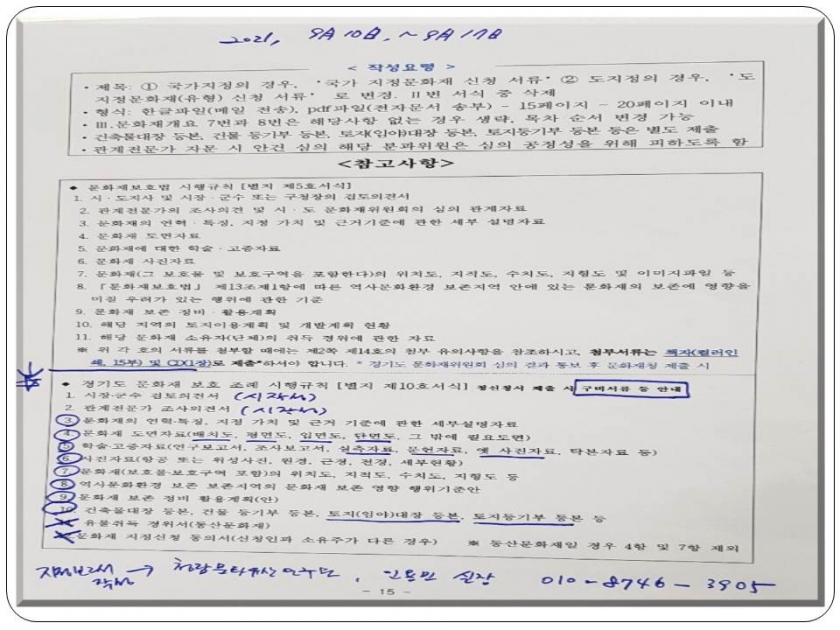 2021, 9月 10日, ~ 9月 17日
< 작성요령 >
• 제목: ① 국가지정의 경우, "국가 지정문화재 신청 서류" ② 도지정의 경우, "도
지정문화재(유형) 신청 서류" 로 변경. Ⅱ번 서식 중 삭제
• 형식: 한글파일(메일 전송), pdf파일(전자문서 송부) - 15페이지 - 20페이지 이내
• Ⅲ.문화재개요 7번과 8번은 해당사항 없는 경우 생략, 목차 순서 변경 가능
• 건축물대장 등본, 건물 등기부 등본, 토지(임야)대장 등본, 토지등기부 등본 등은 별도 제출
• 관계전문가 자문 시 안건 심의 해당 분과위원은 심의 공정성을 위해 피하도록 함
<참고사항>
◆ 문화재보호법 시행규칙 [별지 제5호서식]
1. 시·도지사 및 시장·군수 또는 구청장의 검토의견서
2. 관계전문가의 조사의견 및 시·도 문화재위원회의 심의 관계자료
3. 문화재의 연혁·특징, 지정 가치 및 근거기준에 관한 세부 설명자료
4. 문화재 도면자료
5. 문화재에 대한 학술·고증자료
6. 문화재 사진자료
7. 문화재(그 보호물 및 보호구역을 포함한다)의 위치도, 지적도, 수치도, 지형도 및 이미지파일 등
8. 『문화재보호법』 제13조제1항에 따른 역사문화환경 보존지역 안에 있는 문화재의 보존에 영향을
미칠 우려가 있는 행위에 관한 기준
9. 문화재 보존 정비·활용계획
10. 해당 지역의 토지이용계획 및 개발계획 현황
11. 해당 문화재 소유자(단체)의 취득 경위에 관한 자료
※ 위 각 호의 서류를 첨부할 때에는 제2쪽 제14호의 첨부 유의사항을 참조하시고, 첨부서류는 책자(컬러인
쇄, 15부) 및 CD(1장)로 제출*하셔야 합니다. * 경기도 문화재위원회 심의 결과 통보 후 문화재청 제출 시
◆ 경기도 문화재 보호 조례 시행규칙 [별지 제10호서식] 정신청서 제출 시 구비서류 등 안내
1. 시장·군수 검토의견서 (시작성)
2. 관계전문가 조사의견서 (시작성)
③ 문화재의 연혁·특징, 지정 가치 및 근거 기준에 관한 세부설명자료
④ 문화재 도면자료(배치도, 평면도, 입면도, 단면도, 그 밖에 필요도면)
⑤ 학술·고증자료(연구보고서, 조사보고서, 실측자료, 문헌자료, 옛 사진자료, 탁본자료 등)
⑥ 사진자료(항공 또는 위성사진, 원경, 근경, 전경, 세부현황)
⑦ 문화재(보호물·보호구역 포함)의 위치도, 지적도, 수치도, 지형도 등
⑧ 역사문화환경 보존 보존지역의 문화재 보존 영향 행위기준안
⑨ 문화재 보존 정비 활용계획(안)
10. 건축물대장 등본, 건물 등기부 등본, 토지(임야)대장 등본, 토지등기부 등본 등
유물취득 경위서(동산문화재)
문화재 지정신청 동의서(신청인과 소유주가 다른 경우) ※ 동산문화재일 경우 4항 및 7항 제외
작성 → 실장 010-8746-3905
- 15 -